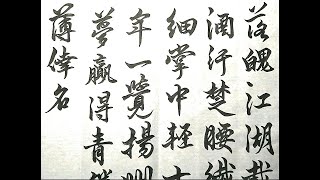 落魄江湖載
酒行楚腰纖
細掌中輕十
年一覺揚州
夢贏得青樓
薄倖名